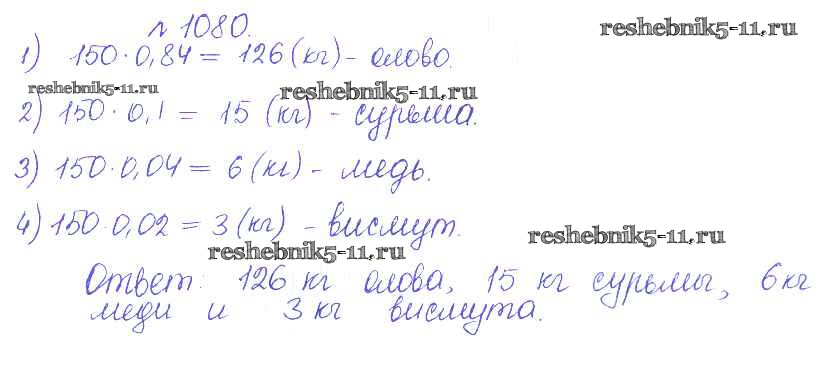 № 1080.
reshebnik5-11.ru
1) 150·0,84 = 126 (кг) - олово.
reshebnik5-11.ru reshebnik5-11.ru
2) 150·0,1 = 15 (кг) - сурьма.
3) 150·0,04 = 6 (кг) - медь.
4) 150·0,02 = 3 (кг) - висмут.
reshebnik5-11.ru reshebnik5-11.ru
Ответ: 126 кг олова, 15 кг сурьмы, 6 кг
меди и 3 кг висмута.